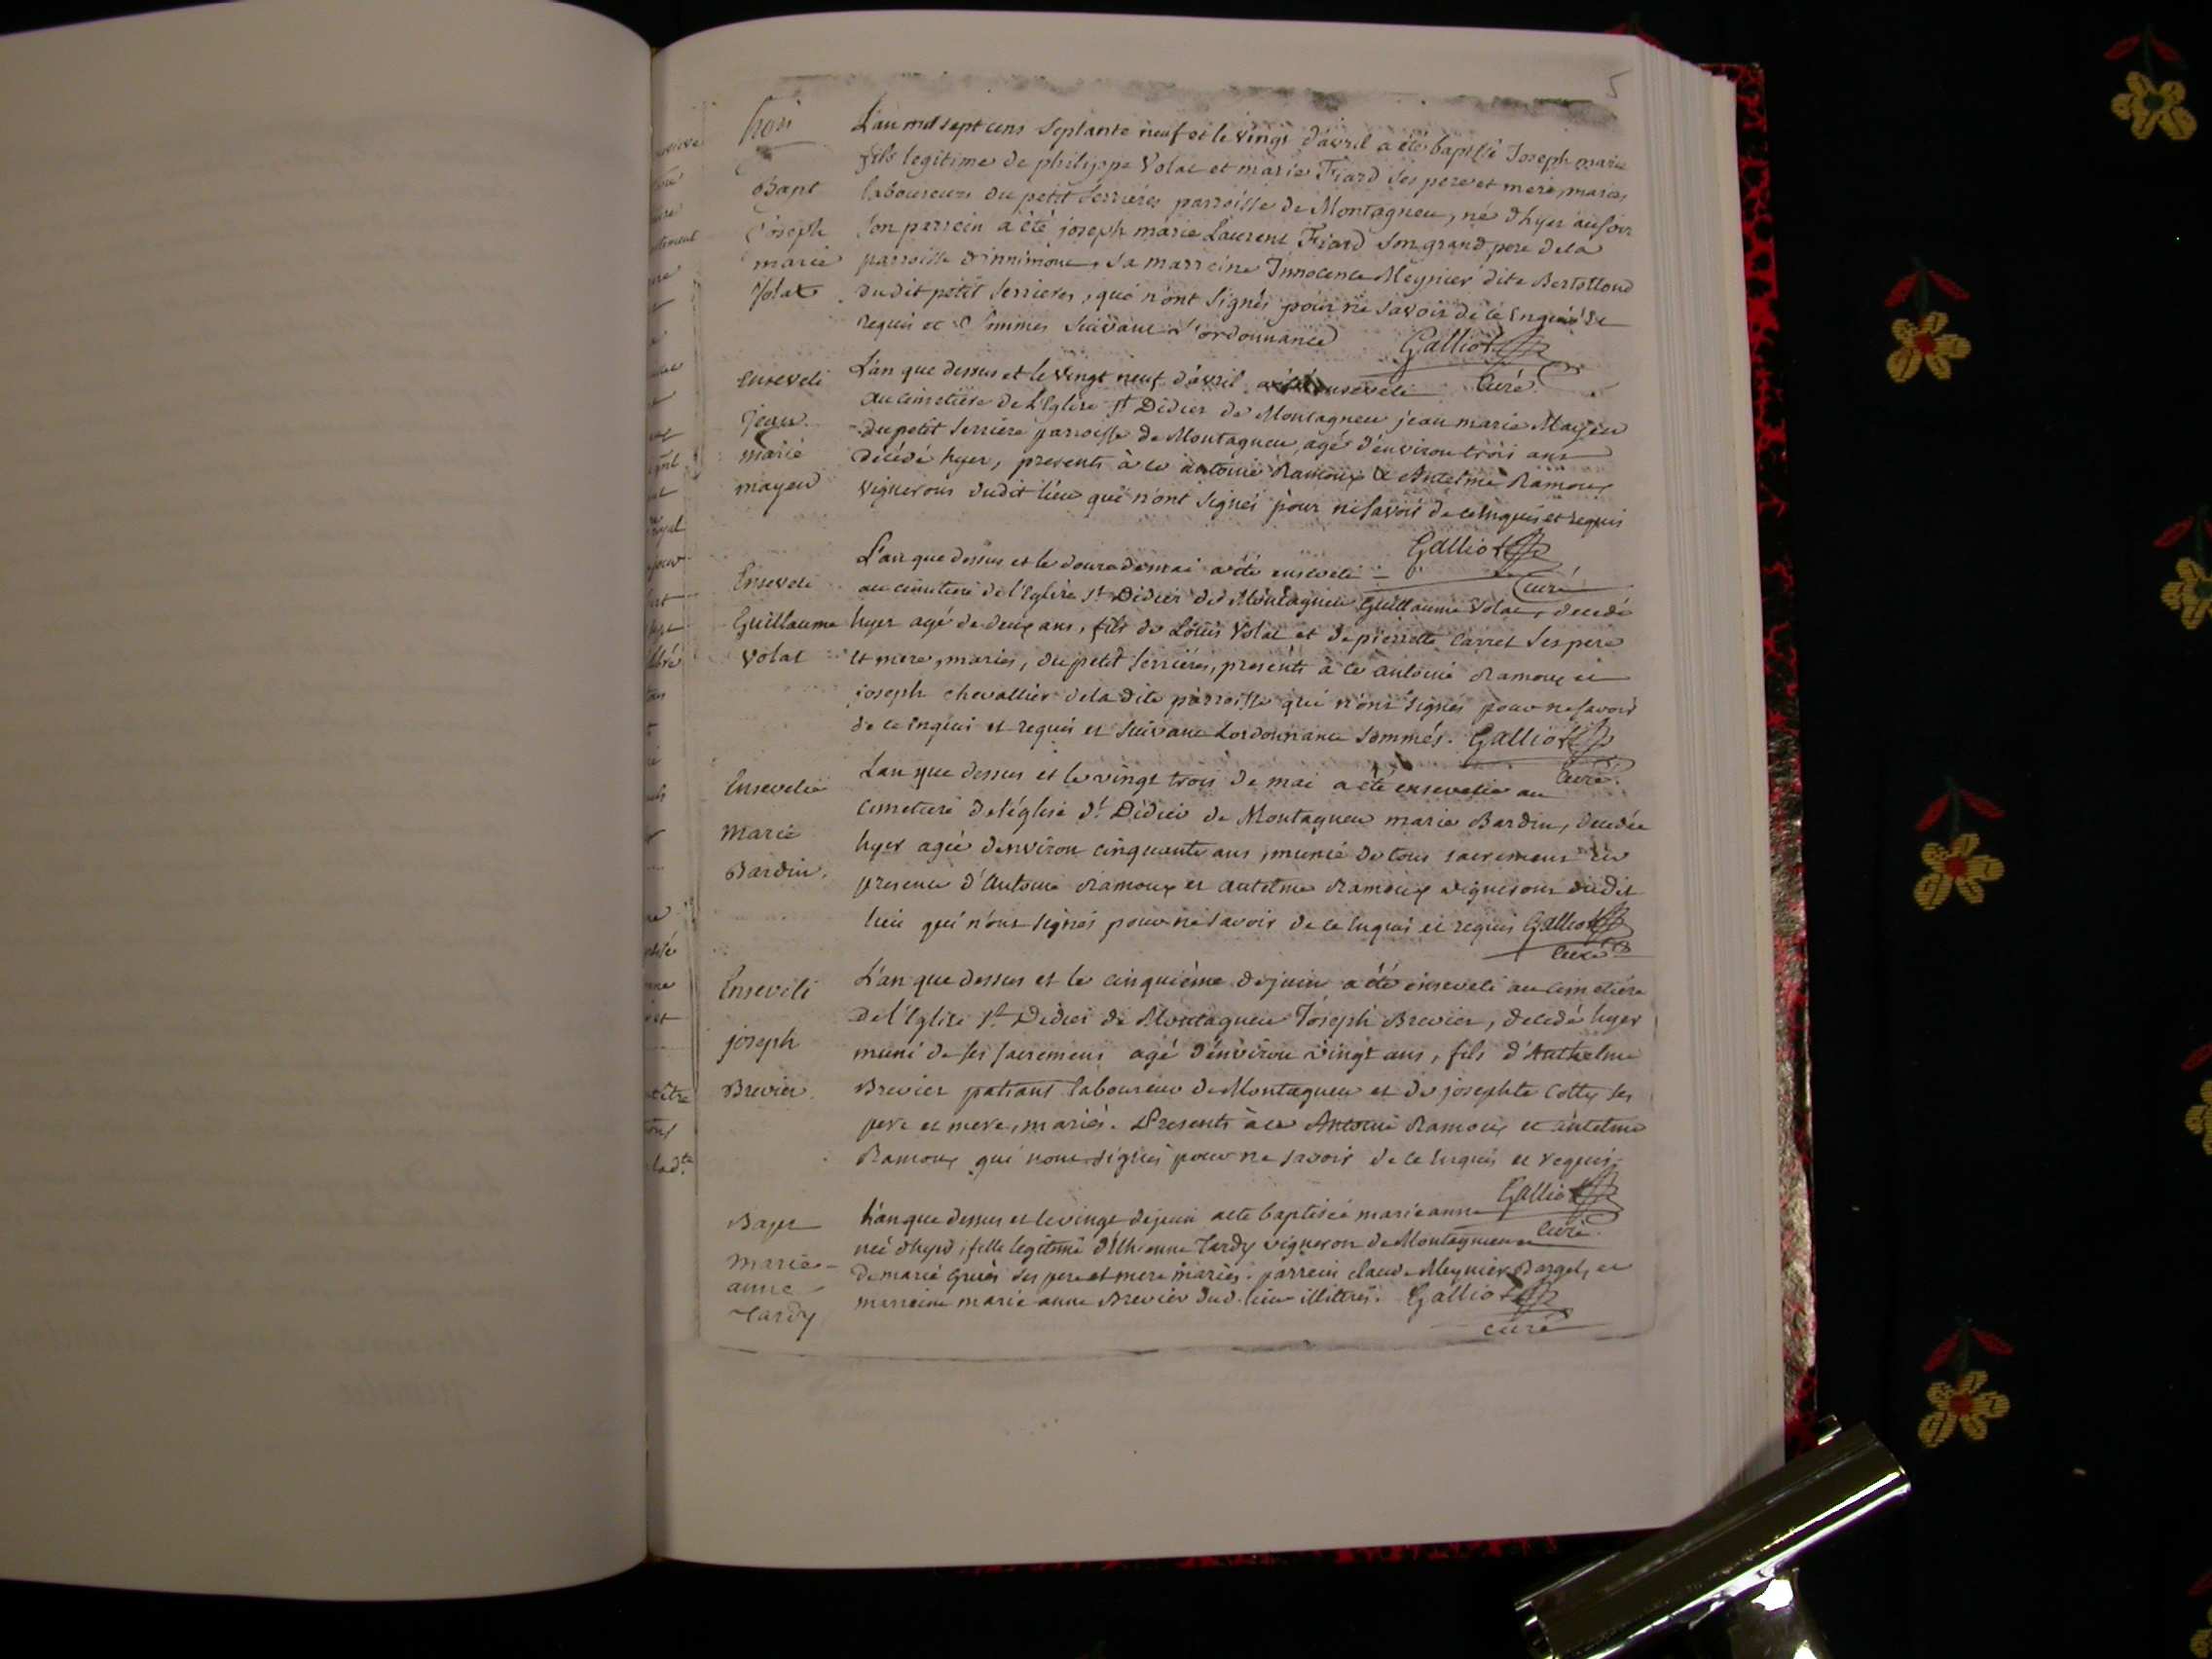 5
L'an mil sept cens septante neuf et le vingt d'avril a été baptisé Joseph marie
fils legitime de philippe Volat et marie Fiard ses pere et mere, mariés,
Bapt laboureurs du petit Serrieres parroisse de Montagneu, né d'hyer au soir
joseph son parrein a été joseph marie Laurent Fiard son grand pere de la
marie parroisse d'innimont, sa marreine Innocence Meynier dite Bertollond
Volat dudit petit serrieres, qui n'ont signés pour ne savoir de ce Enquis
requis et Sommes suivant L'ordonnance Galliot
curé
Enseveli L'an que dessus et le vingt neuf d'avril a été enseveli
au cimetiere de L'Eglise St Didier de Montagneu jean marie Mayeu
jean du petit Serriere parroisse de Montagneu, agé d'environ trois ans
marie décédé hyer, presents à ce antoine Ramoux & Antelme Ramoux
mayeu vignerons dudit lieu qui n'ont signés pour ne savoir de ce enquis et requis
Galliot
curé
L'an que dessus et le douze de mai a été enseveli
Enseveli au cimetiere de l'Eglise St Didier de Montagneu Guillaume Volat, decedé
Guillaume hyer agé de deux ans, fils de Louis Volat et de pierrette Carret ses pere
Volat et mere, mariés, du petit serrieres, presents à ce antoine Ramoux et
joseph chevallier de la dite parroisse qui n'ont signés pour ne savoir
de ce enquis et requis et suivant L'ordonnance sommés. Galliot
curé
Ensevelie L'an que dessus et le vingt trois de mai a été ensevelie au
cimetiere de l'église St Didier de Montagneu marie Bardin, decedée
marie hyer agée d'environ cinquante ans, munie de tous sacremens en
Bardin. presence d'Antoine Ramoux et antelme Ramoux vignerons dudit
lieu qui n'ont signés pour ne savoir de ce enquis et requis Galliot
curé
Enseveli L'an que dessus et le cinquième de juin a été enseveli au cimetiere
de l'Eglise St Didier de Montagneu Joseph Brevier, decedé hyer
joseph muni de ses sacremens agé d'environ vingt ans, fils d'Anthelme
Brevier. Brevier laboureur de Montagneu et de josephte Cotty ses
pere et mere, mariés. Presents à ce Antoine Ramoux et antelme
Ramoux qui n'ont signés pour ne savoir de ce enquis et requis.
Galliot
curé
L'an que dessus et le vingt de juin a été baptisée marie anne
née d'hyer, fille legitime d'Ethienne Tardy vigneron de Montagneu et
marie de marie ses pere et mere mariés. parrein claude Meynier et
anne marreine marie anne Brevier dud. lieu illittrés. Galliot
Tardy
curé